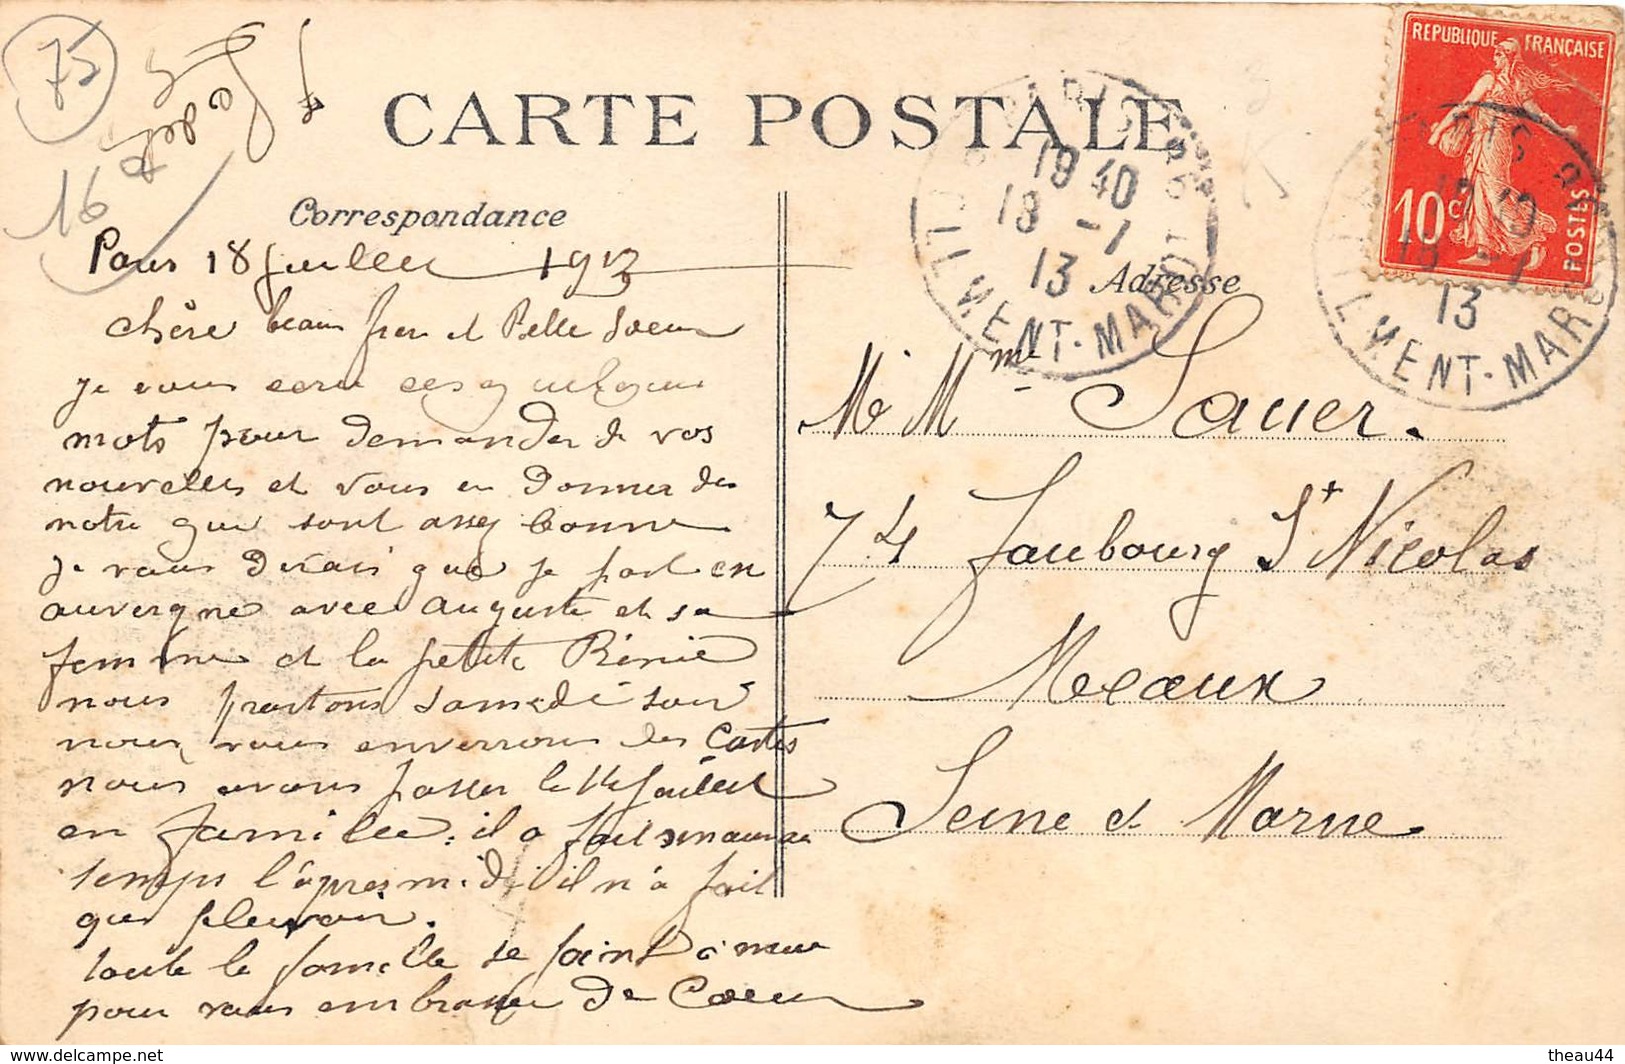 75
16
CARTE POSTALE
Correspondance
Paris 18 Juillet 1913
chère beau frere et Belle Soeur
je vous ecrie ces quelques
mots pour demander de vos
nouvelles et vous en donner des
notre que sont assez bonne
je vous dirais que je part en
auvergne avec auguste et sa
femme et la petite Rénié
nous partons samedi soir
nous vous enverrons des Cartes
nous avons passer le 14 Juillet
en famille, il a fait mauvais
temps l'apres midi il n'a fait
que pleuvoir.
toute la famille se joint a
pour vous embrasser de Coeur
REPUBLIQUE FRANÇAISE
10c
POSTES
PARIS
19 40
18 -7
13
CLIMENT-MAROT
PARIS
19 40
18 -7
13
MENT-MAR
Adresse
M Mme Sauer.
74 Faubourg St Nicolas
Meaux
Seine et Marne
www.delcampe.net
theau44